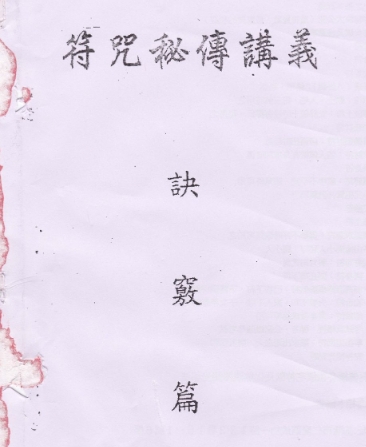 符咒秘傳講義
訣竅篇